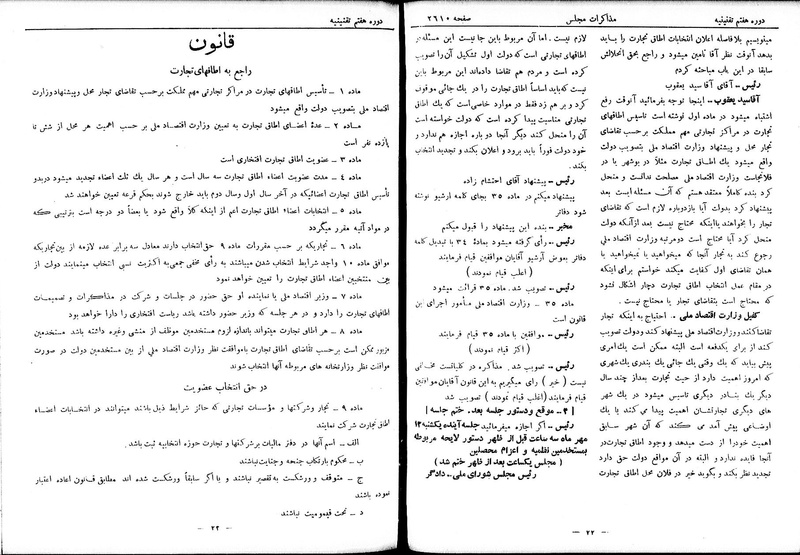 دوره هفتم تقنینیه
مذاکرات مجلس
صفحه ۲٦۱۰
مینویسیم بلافاصله اعلان انتخابات اطاق تجارت را باید
بدهد آنوقت نظر آقا تامین میشود و راجع بحق انحلالش
سابقا در این باب مباحثه کردم
رئیس – آقای آقا سید یعقوب
آقاسید یعقوب – اینجا توجه بفرمائید آنوقت رفع
اشتباه میشود در ماده اول نوشته است تاسیس اطاقهای
تجارت در مراکز تجارتی مهم مملکت برحسب تقاضای
تجار محل و پیشنهاد وزارت اقتصاد ملی بتصویب دولت
واقع میشود یك اطاق تجارت مثلا در بوشهر یا در
فلانجاست وزارت اقتصاد ملی مصلحت ندانست و منحل
کرد بنده کاملا معتقدهستم که آن مسئله ایست بعد
پیشنهاد کرد بدولت آیا بازدوباره لازم است که تقاضای
تجار را بخواهند یااینکه محتاج نیست بعد ازآنکه دولت
منحل کرد آیا محتاج است دومرتبه وزارت اقتصاد ملی
رجوع کند به تجار آنجا که میخواهید یا نمیخواهید یا
همان تقاضای اول کفایت میکند خواستم برای اینکه
در مقام عمل انتخاب اطاق تجارت دچار اشکال نشود
که محتاج است بتقاضای تجار یا محتاج نیست.
کفیل وزارت اقتصاد ملی – احتیاج به اینکه تجار
تقاضاکنند ووزارت اقتصاد ملی پیشنهاد کند ودولت تصویب
کند از برای یکدفعه است البته ممکن است یك امری
پیش بیاید که یك وقتی یك جائی یك بندری یك شهری
که امروز اهمیت دارد از حیث تجارت بعداز چند سال
دیگر یك بنادر دیگری تاسیس میشود در یك شهر
های دیگری تجارتشان اهمیت پیدا می کند یا یك
اوضاعی پیش آمد می کند که آن شهر سابق
اهمیت خودرا از دست میدهد و وجود اطاق تجارت در
آنجا فایده ندارد و البته در آن مواقع دولت حق دارد
تجدید نظر بکند و بگوید خیر در فلان محل اطاق تجارت
لازم نیست. اما آن مربوط باین جا نیست این مسئله به
اطاقهای تجارتی است که دولت اول تشکیل آن را تصویب
کرده است و مردم هم تقاضا داده‌اند این مربوط باین
نیست که باید اساساً اطاق تجارت را در یك جائی موقوف
کرد و بر هم زد فقط در موارد خاصی است که یك اطاق
تجارتی مناسبت پیدا کرده است که دولت خواسته است
آن را منحل کند دیگر آنجا دو باره اجازه هم ندارد و
خود دولت فوراً باید برود و اعلان بکند و تجدید انتخاب
بکند.
رئیس – پیشنهاد آقای احتشام زاده
پیشنهاد میکنم در ماده ۳۵ بجای کلمه ارشیو نوشته
شود دفاتر
مخبر – بنده این پیشنهاد را قبول میکنم
رئیس – رأی گرفته میشود بمادهٔ ۳٤ با تبدیل کلمه
دفاتر بعوض آرشیو آقایان موافقین قیام فرمایند
( اغلب قیام نمودند )
رئیس – تصویب شد. ماده ۳۵ قرائت میشود
ماده ۳۵ – وزارت اقتصاد ملی مأمور اجرای این
قانون است
رئیس – موافقین با ماده ۳۵ قیام فرمایند
( اکثر قیام نمودند )
رئیس – تصویب شد. مذاکره در کلیاتست مخالفی
نیست ( خیر ) رای میگیریم به این قانون آقایان موافقین
قیام فرمایند (اغلب قیام نمودند ) تصویب شد
[ ٤ – موقع ودستور جلسه بعد – ختم جلسه ]
رئیس – اگر اجازه میفرمائید جلسه آینده یکشنبه ۱۳
مهر ماه سه ساعت قبل از ظهر دستور لایحه مربوطه
بمستخدمین نظمیه و اعزام محصلین
( مجلس یکساعت بعد از ظهر ختم شد )
رئیس مجلس شورای ملی – دادگر
– ۲۲ –
دوره هفتم تقنینیه
قانون
راجع به اطاقهای تجارت
ماده ۱ – تأسیس اطاقهای تجارت در مراکز تجارتی مهم مملکت برحسب تقاضای تجار محل وپیشنهاد وزارت
اقتصاد ملی بتصویب دولت واقع میشود
ماده ۲ – عدهٔ اعضای اطاق تجارت به تعیین وزارت اقتصاد ملی بر حسب اهمیت هر محل از شش تا
پانزده نفر است
ماده ۳ – عضویت اطاق تجارت افتخاری است
ماده ٤ – مدت عضویت اطاق تجارت سه سال است و هر سال یك ثلث اعضاء تجدید میشود در بدو
تأسیس اطاق تجارت اعضائیکه در آخر سال اول وسال دوم باید خارج شوند بحکم قرعه تعیین خواهند شد
ماده ۵ – انتخابات اعضاء اطاق تجارت اعم از اینکه کلا واقع شود یا بعضاً دو درجه است بترتیبی که
در مواد آتیه مقرر میگردد
ماده ٦ – تجاریکه بر حسب مقررات ماده ۹ حق انتخاب دارند معادل سه برابر عده لازمه از بین تجاریکه
موافق ماده ۱۰ واجد شرایط انتخاب شدن میباشند به رأی مخفی جمعی به اکثریت نسبی انتخاب مینمایند دولت از
بین منتخبین اعضاء اطاق تجارت را تعیین خواهد نمود
ماده ۷ – وزیر اقتصاد ملی یا نماینده او حق حضور در جلسات و شرکت در مذاکرات و تصمیمات
اطاقهای تجارت را دارد و در هر جلسه که وزیر حضور داشته باشد ریاست افتخاری را دارا خواهد بود
ماده ۸ – هر اطاق تجارت میتواند باندازه لزوم مستخدمین موظف از منشی وغیره داشته باشد مستخدمین
مزبور ممکن است برحسب تقاضای اطاق تجارت باموافقت نظر وزارت اقتصاد ملی از بین مستخدمین دولت در صورت
موافقت نظر وزارتخانه های مربوطه آنها انتخاب شوند
در حق انتخاب عضویت
ماده ۹ – تجار وشرکتها و مؤسسات تجارتی که حائز شرایط ذیل باشند میتوانند در انتخابات اعضاء
اطاق تجارت شرکت نمایند
الف – اسم آنها در دفتر مالیات بر شرکتها و تجارت حوزه انتخابیه ثبت باشد.
ب – محکوم بارتکاب جنحه و جنایت نباشند
ج – متوقف و ورشکست به تقصیر نباشند و یا اگر سابقاً ورشکست شده اند مطابق قانون اعاده اعتبار
نموده باشند
د – تحت قیمومیت نباشند
– ۲۳ –